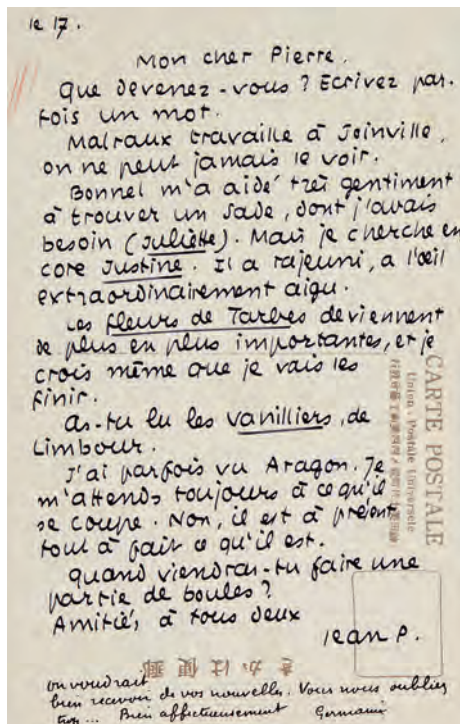 le 17.
Mon cher Pierre.
Que devenez-vous ? Ecrivez par-
fois un mot.
Malraux travaille à Joinville,
on ne peut jamais le voir.
Bonnel m'a aidé très gentiment
à trouver un Sade, dont j'avais
besoin (Juliette). Mais je cherche en
core Justine. Il a rajeuni, a l'œil
extraordinairement aigu.
Les fleurs de Tarbes deviennent
de plus en plus importantes, et je
crois même que je vais les
finir.
As-tu lu les vanilliers, de
Limbour.
J'ai parfois vu Aragon. Je
m'attends toujours à ce qu'il
se coupe. Non, il est à présent
tout à fait ce qu'il est.
Quand viendras-tu faire une
partie de boules ?
Amitiés, à tous deux
Jean P.
on voudrait
bien recevoir de vos nouvelles. Vous nous oubliez
trop... Bien affectueusement Germaine
CARTE POSTALE
Union Postale Universelle
きかは便郵